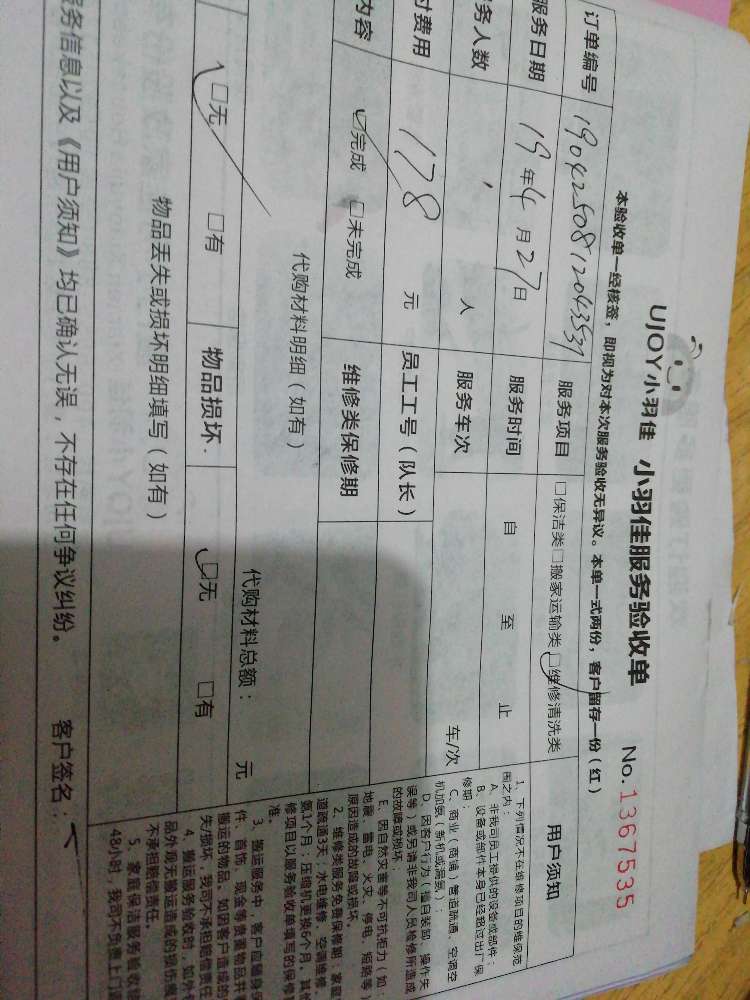 UJOY小羽佳 小羽佳服务验收单 No.1367535
本验收单一经核签，即视为对本次服务验收无异议。本单一式两份，客户留存一份（红）
订单编号 服务项目 □保洁类□搬家运输类☑维修清洗类
服务日期 19年4月27日 服务时间 自 至 止
务人数 人 服务车次 车/次
付费用 178 元 员工工号（队长）
内容 ☑完成 □未完成 维修类保修期
代购材料明细（如有） 代购材料总额： 元
☑无 □有 物品损坏 ☑无 □有
物品丢失或损坏明细填写（如有）
服务信息以及《用户须知》均已确认无误，不存在任何争议纠纷。 客户签名：
用户须知
1、下列情况不在维修项目的维保范
围之内：
A、非我司员工提供的设备或部件；
B、设备或部件本身已经超过出厂保
修期；
C、商业（商铺）管道疏通、空调空
机加氨（新机或漏氨）；
D、因客户行为（擅自装卸、操作失
误等）或另请非我司人员检修所造成
的故障或损坏；
E、因自然灾害等不可抗拒力（如：
地震、雷电、火灾、停电、短路等）
原因造成的故障或损坏。
2、维修类服务免费保修期：家庭
道疏通3天；水电维修、空调维修、
氨1个月；压缩机更换6个月。其他
修项目以服务验收单填写的保修期
准。
3、搬运服务中，客户应随身保
件、首饰、现金等贵重物品并
搬运的物品。如因客户造成的
失/损坏，我司不承担赔偿责任
4、搬运服务验收时，如外包
品外观无搬运造成的损伤痕
不承担赔偿责任。
5、家庭保洁服务验收
48小时，我司不负责上门